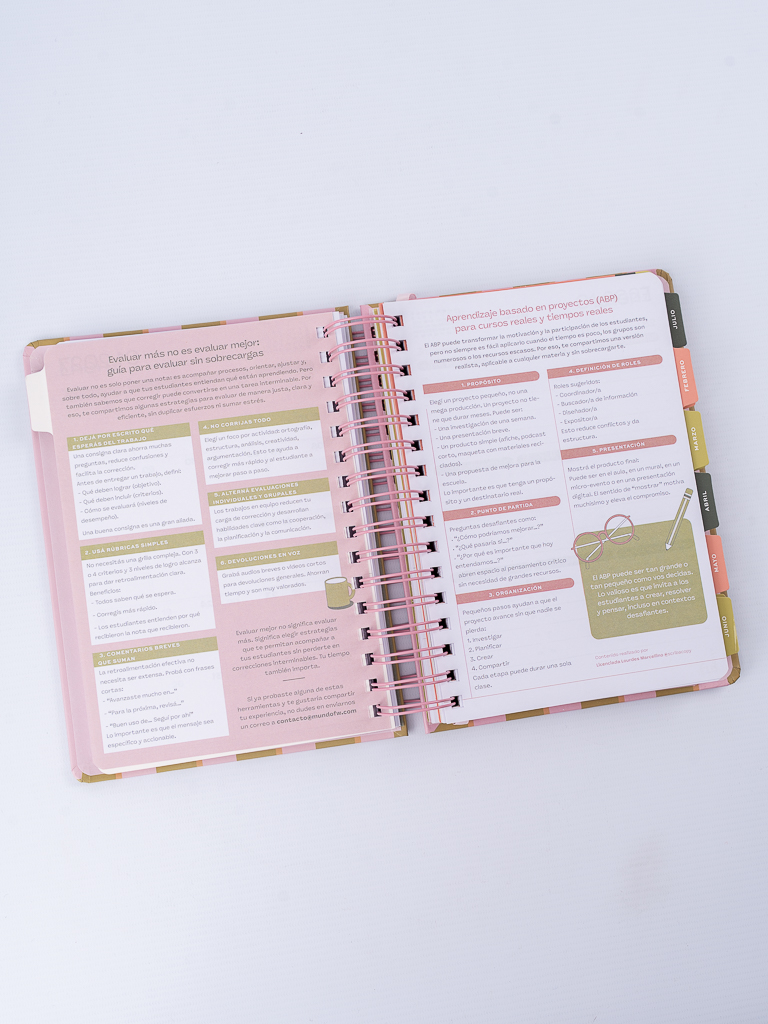 Evaluar más no es evaluar mejor:
guía para evaluar sin sobrecargas
Evaluar no es solo poner una nota: es acompañar procesos, orientar, ajustar y,
sobre todo, ayudar a que tus estudiantes entiendan qué están aprendiendo. Pero
también sabemos que corregir puede convertirse en una tarea interminable. Por
eso, te compartimos algunas estrategias para evaluar de manera justa, clara y
eficiente, sin duplicar esfuerzos ni sumar estrés.
1. DEJÁ POR ESCRITO QUÉ
ESPERÁS DEL TRABAJO
Una consigna clara ahorra muchas
preguntas, reduce confusiones y
facilita la corrección.
Antes de entregar un trabajo, definí:
- Qué deben lograr (objetivo).
- Qué deben incluir (criterios).
- Cómo se evaluará (niveles de
desempeño).
Una buena consigna es una gran aliada.
2. USÁ RÚBRICAS SIMPLES
No necesitás una grilla compleja. Con 3
o 4 criterios y 3 niveles de logro alcanza
para dar retroalimentación clara.
Beneficios:
- Todos saben qué se espera.
- Corregís más rápido.
- Los estudiantes entienden por qué
recibieron la nota que recibieron.
3. COMENTARIOS BREVES
QUE SUMAN
La retroalimentación efectiva no
necesita ser extensa. Probá con frases
cortas:
- "Avanzaste mucho en..."
- "Para la próxima, revisá..."
- "Buen uso de... Seguí por ahí"
Lo importante es que el mensaje sea
específico y accionable.
4. NO CORRIJAS TODO
Elegí un foco por actividad: ortografía,
estructura, análisis, creatividad,
argumentación. Esto te ayuda a
corregir más rápido y al estudiante a
mejorar paso a paso.
5. ALTERNÁ EVALUACIONES
INDIVIDUALES Y GRUPALES
Los trabajos en equipo reducen tu
carga de corrección y desarrollan
habilidades clave como la cooperación,
la planificación y la comunicación.
6. DEVOLUCIONES EN VOZ
Grabá audios breves o videos cortos
para devoluciones generales. Ahorran
tiempo y son muy valorados.
Evaluar mejor no significa evaluar
más. Significa elegir estrategias
que te permitan acompañar a
tus estudiantes sin perderte en
correcciones interminables. Tu tiempo
también importa.
Si ya probaste alguna de estas
herramientas y te gustaría compartir
tu experiencia, no dudes en enviarnos
un correo a contacto@mundofw.com
Aprendizaje basado en proyectos (ABP)
para cursos reales y tiempos reales
El ABP puede transformar la motivación y la participación de los estudiantes,
pero no siempre es fácil aplicarlo cuando el tiempo es poco, los grupos son
numerosos o los recursos escasos. Por eso, te compartimos una versión
realista, aplicable a cualquier materia y sin sobrecargarte.
1. PROPÓSITO
Elegí un proyecto pequeño, no una
mega producción. Un proyecto no tie-
ne que durar meses. Puede ser:
- Una investigación de una semana.
- Una presentación breve.
- Un producto simple (afiche, podcast
corto, maqueta con materiales reci-
clados).
- Una propuesta de mejora para la
escuela.
Lo importante es que tenga un propó-
sito y un destinatario real.
2. PUNTO DE PARTIDA
Preguntas desafiantes como:
- "¿Cómo podríamos mejorar...?"
- "¿Qué pasaría si...?"
- "¿Por qué es importante que hoy
entendamos...?"
abren espacio al pensamiento crítico
sin necesidad de grandes recursos.
3. ORGANIZACIÓN
Pequeños pasos ayudan a que el
proyecto avance sin que nadie se
pierda:
1. Investigar
2. Planificar
3. Crear
4. Compartir
Cada etapa puede durar una sola
clase.
4. DEFINICIÓN DE ROLES
Roles sugeridos:
- Coordinador/a
- Buscador/a de información
- Diseñador/a
- Expositor/a
Esto reduce conflictos y da
estructura.
5. PRESENTACIÓN
Mostrá el producto final:
Puede ser en el aula, en un mural, en un
micro-evento o en una presentación
digital. El sentido de "mostrar" motiva
muchísimo y eleva el compromiso.
El ABP puede ser tan grande o
tan pequeño como vos decidas.
Lo valioso es que invita a los
estudiantes a crear, resolver
y pensar, incluso en contextos
desafiantes.
Contenido realizado por
Licenciada Lourdes
JULIO
FEBRERO
MARZO
ABRIL
MAYO
JUNIO